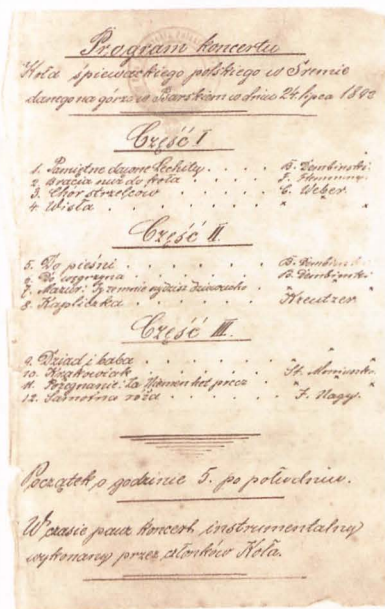 Program koncertu
Koła śpiewackiego polskiego w Śremie
danego na górze w Parskiem w dniu 24. lipca 18
Część I
1. Pamiętne dawne Lechity . . . . B. Dembiński
2. Bracia nuż do koła . . . .
3. Chór strzelców . . . . C. Weber
4. Wisła . . . . " "
Część II.
5. Do pieśni . . . . B. Dembiński
6. . . . . B. Dembiński
7. Mazur: . . . . "
8. Kapliczka . . . . Kreutzer
Część III.
9. Dziad i baba . . . . " "
10. Krakowiak . . . . St. Moniuszko
11. Pożegnanie: Za Niemen het precz . . "
12. Samotna róża . . . . F. Nagy.
Początek o godzinie 5. po południu.
W czasie pauz koncert instrumentalny
wykonany przez członków Koła.